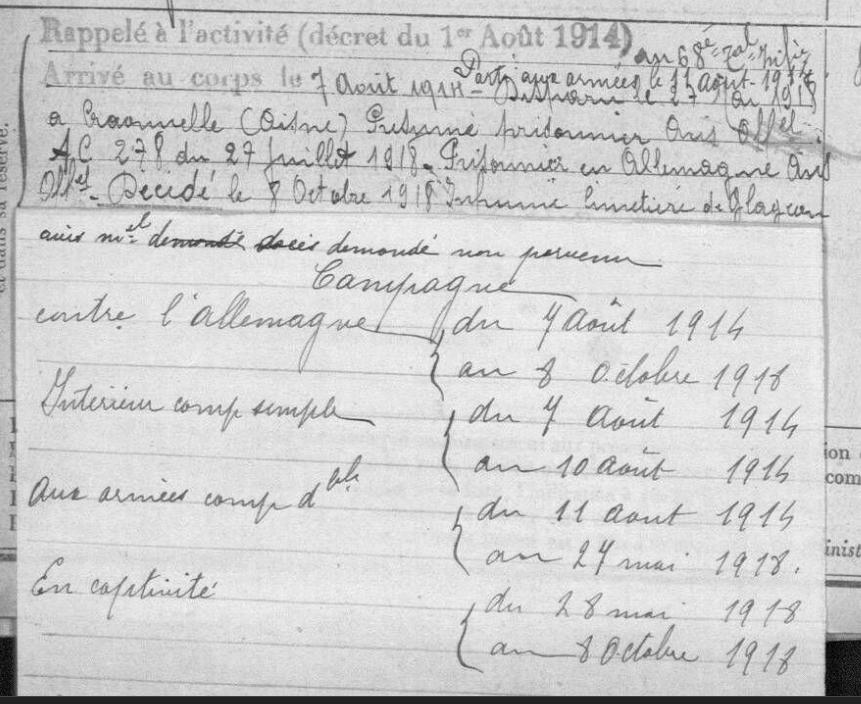 Rappelé à l'activité (décret du 1er Août 1914) au 68e Ral Infie
Arrivé au corps le 7 Août 1914 - Parti aux armées le 11 Août 1914
Disparu le 27 Mai 1918
a Craonnelle (Aisne) Présumé prisonnier Avis Offel.
A.C. 278 du 27 Juillet 1918. Prisonnier en Allemagne Avis
Offel - Décédé le 8 Octobre 1918 Inhumé Cimetière de
avis mel demandé non parvenu
Campagne
contre l'allemagne du 7 Août 1914
au 8 Octobre 1918
Intérieur comp simple du 7 Août 1914
au 10 août 1914
Aux armées comp dble du 11 aout 1914
au 27 mai 1918.
En captivité du 28 mai 1918
au 8 Octobre 1918
et dans sa réserve.
ion
com
inist